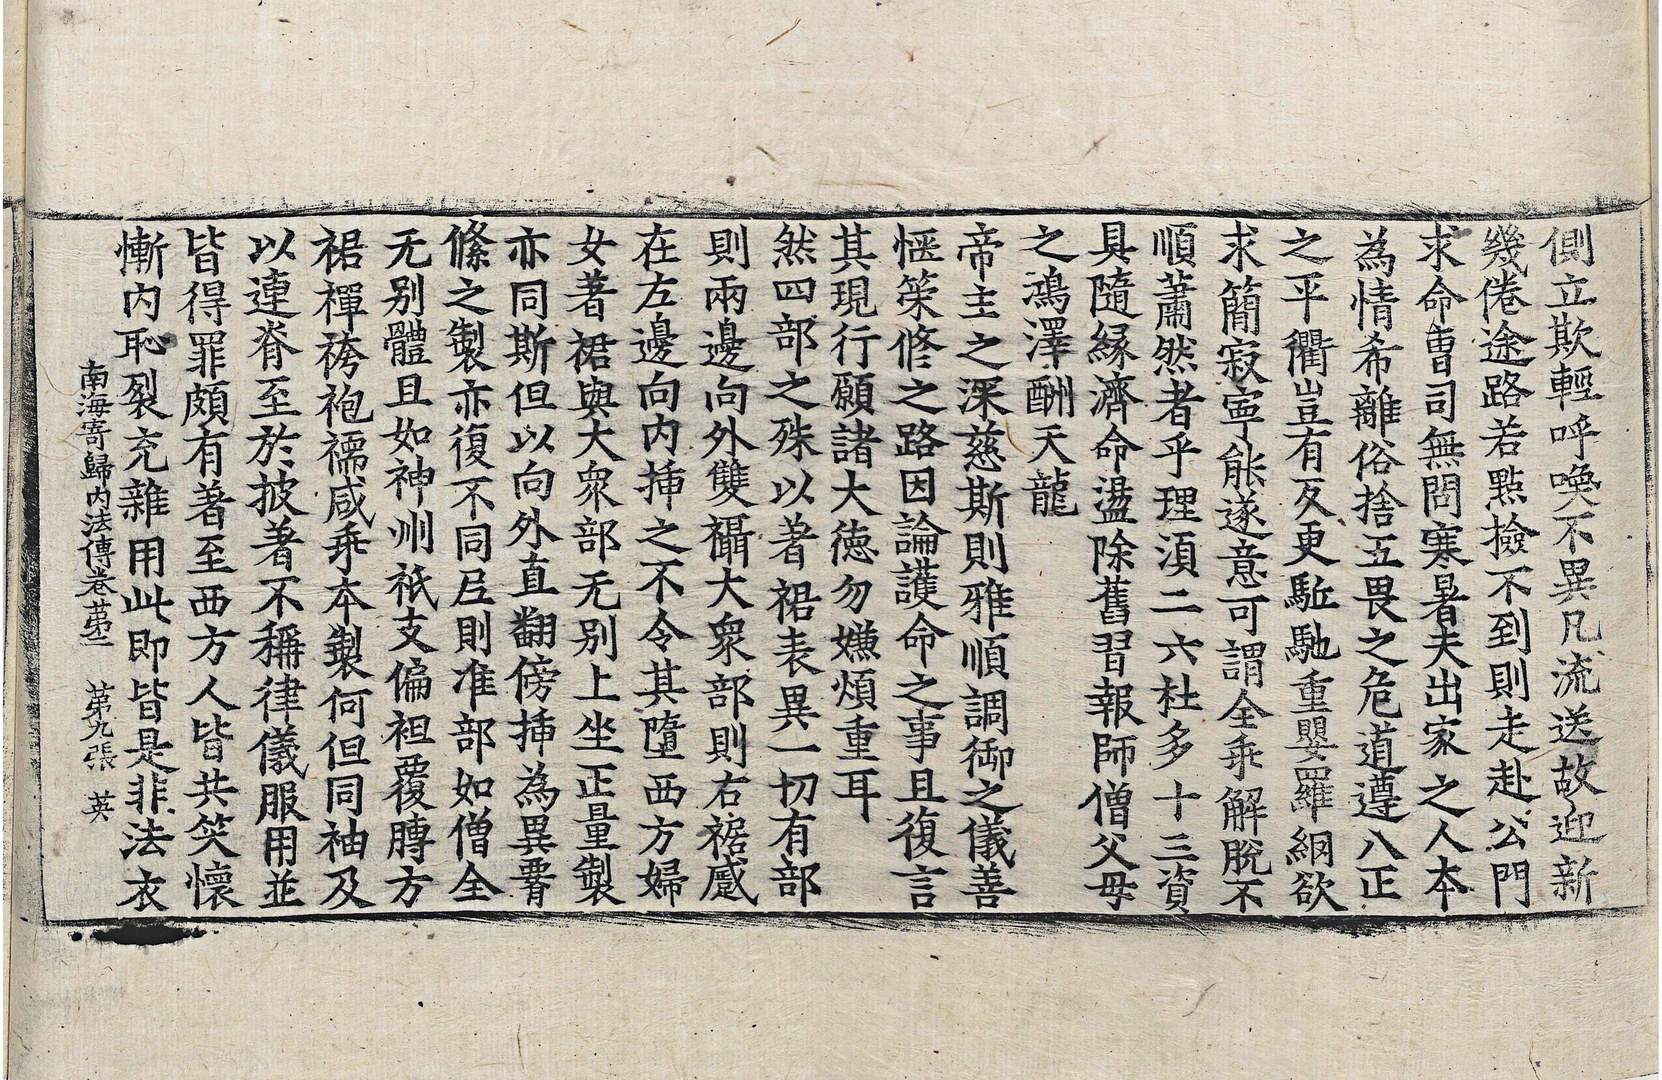 側立欺輕呼喚不異凡流送故迎新
幾倦途路若㸃撿不到則走赴公門
求命曹司無問寒暑夫出家之人本
為情希離俗捨五畏之危道遵八正
之平衢豈有反更駈馳重嬰羅網欲
求簡寂寧能遂意可謂全乖解脫不
順蕭然者乎理須二六杜多十三資
具隨緣濟命盪除舊習報師僧父母
之鴻澤酬天龍
帝主之深慈斯則雅順調御之儀善
愜策修之路因論護命之事且復言
其現行願諸大德勿嫌煩重耳
然四部之殊以著裙表異一切有部
則兩邊向外雙襵大衆部則右裾蹙
在左邊向內揷之不令其墮西方婦
女著裙與大衆部无别上坐正量製
亦同斯但以向外直翻傍揷為異𦝫
絛之製亦復不同尼則准部如僧全
无别體且如神州祇支偏袒覆膊方
裙禪袴袍襦咸乖本製何但同袖及
以連脊至於披著不稱律儀服用並
皆得罪頗有著至西方人皆共笑懷
慚內恥裂充雜用此即皆是非法衣
南海寄歸內法傳卷苐二 第九張 英